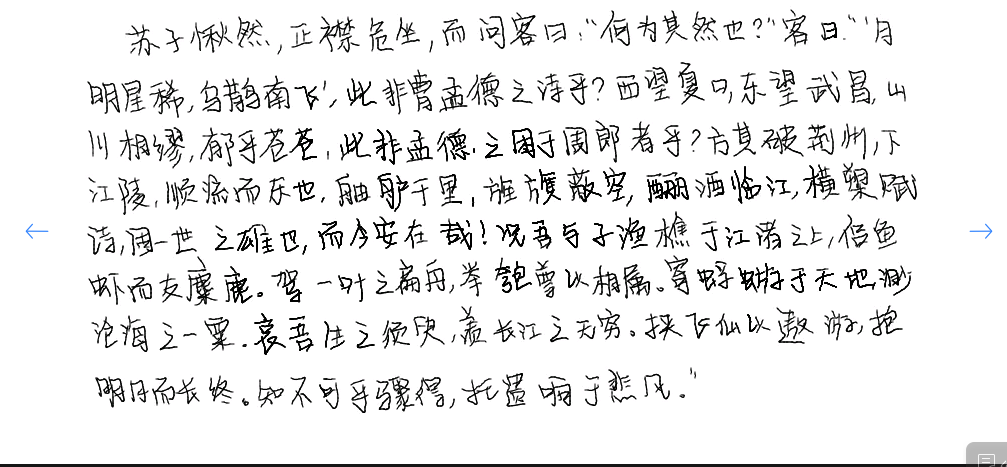 苏子愀然,正襟危坐,而问客曰:“何为其然也?”客曰:“‘月
明星稀,乌鹊南飞’,此非曹孟德之诗乎?西望夏口,东望武昌,山
川相缪,郁乎苍苍,此非孟德之困于周郎者乎?方其破荆州,下
江陵,顺流而东也,舳舻千里,旌旗蔽空,酾酒临江,横槊赋
诗,固一世之雄也,而今安在哉!况吾与子渔樵于江渚之上,侣鱼
虾而友麋鹿。驾一叶之扁舟,举匏尊以相属。寄蜉蝣于天地,渺
沧海之一粟.哀吾生之须臾,羡长江之无穷。挟飞仙以遨游,抱
明月而长终。知不可乎骤得,托遗响于悲风.”